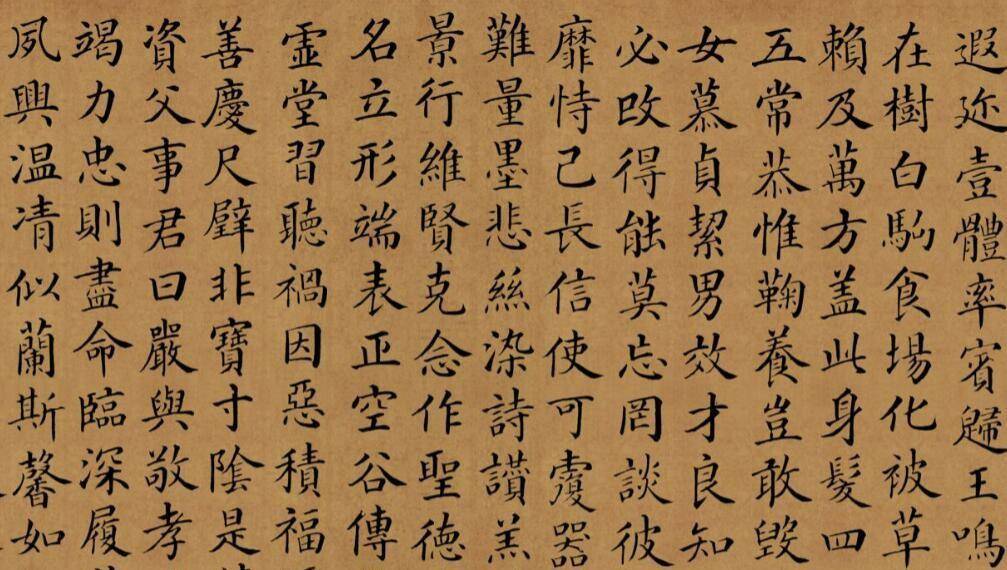 遐迩壹體率賓歸王鳴
在樹白駒食場化被草
賴及萬方盖此身髮四
五常恭惟鞠養豈敢毀
女慕貞絜男效才良知
必改得能莫忘罔談彼
靡恃己長信使可覆器
難量墨悲絲染詩讃羔
景行維賢克念作聖德
名立形端表正空谷傳
虛堂習聽禍因惡積福
善慶尺璧非寶寸陰是
資父事君曰嚴與敬孝
竭力忠則盡命臨深履
夙興温凊似蘭斯馨如